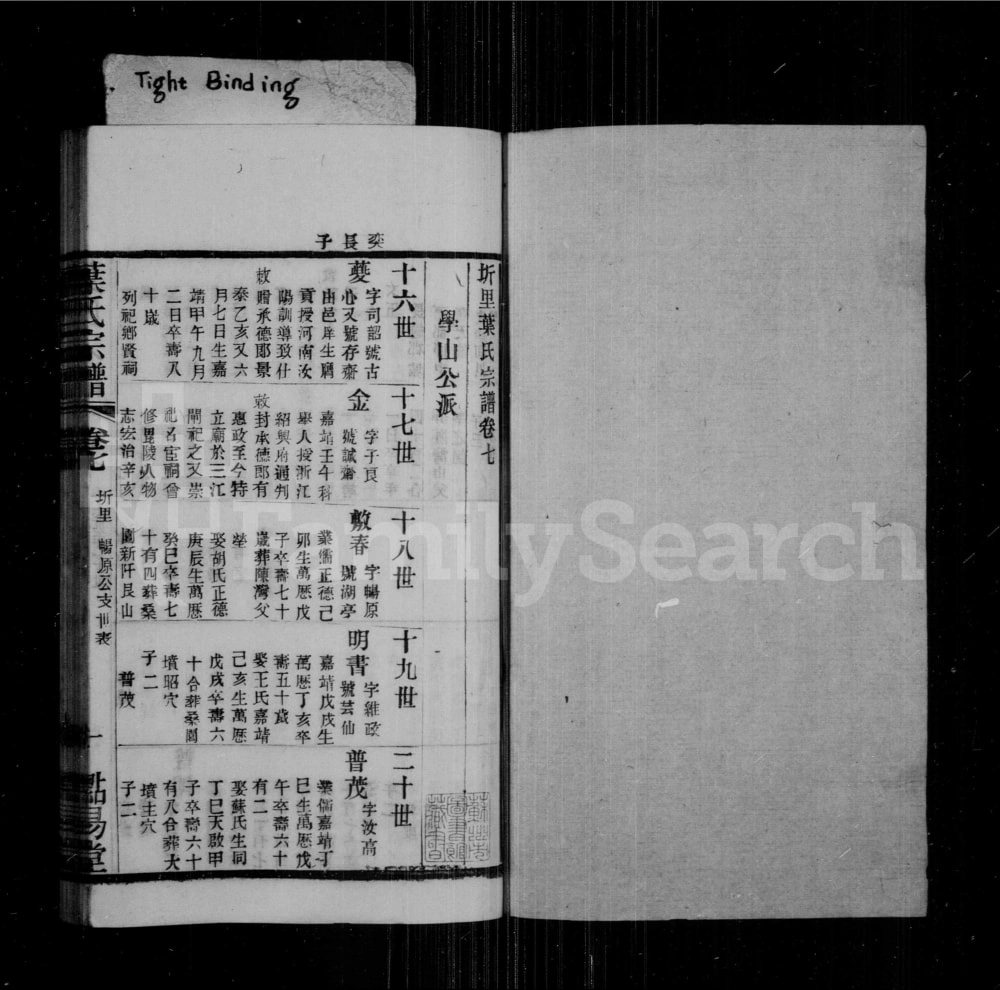 Tight Binding
圻里葉氏宗譜卷七
學山公派
奕長子
十六世
夔 字司韶號古
心又號存齋
由邑庠生廩
貢授河南汝
陽訓導致仕
敕贈承德郎景
泰乙亥又六
月七日生嘉
靖甲午九月
二日卒壽八
十歲
列祀鄉賢祠
十七世
金 字子良
號誠齋
嘉靖壬午科
舉人授浙江
紹興府通判
敕封承德郎有
惠政至今特
立廟於三江
閘祀之又崇
祀名宦祠曾
修毘陵人物
志宏治辛亥
十八世
敷春 字暢原
號湖亭
業儒正德己
卯生萬歷戊
子卒壽七十
歲葬陳灣父
塋
娶胡氏正德
庚辰生萬歷
癸巳卒壽七
十有四葬桑
園新阡艮山
十九世
明書 字維政
號芸仙
嘉靖戊戌生
萬歷丁亥卒
壽五十歲
娶王氏嘉靖
己亥生萬歷
戊戌卒壽六
十合葬桑園
墳昭穴
子二
普茂
二十世
普茂 字汝高
業儒嘉靖丁
巳生萬歷戊
午卒壽六十
有二
娶蘇氏生同
丁巳天啟甲
子卒壽六十
有八合葬大
墳主穴
子二
葉氏宗譜
卷七
圻里 暢原公支世表
一
點易堂
FamilySearch